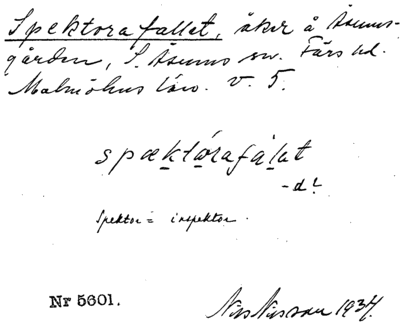 Spektorafallet, åker å Åsums-
gården, S. Åsums sn. Färs hd.
Malmöhus län. V. 5.
spæktórafálat
-d?
Spektor = inspektor.
Nr 5601.
Nils Nilsson 1934.